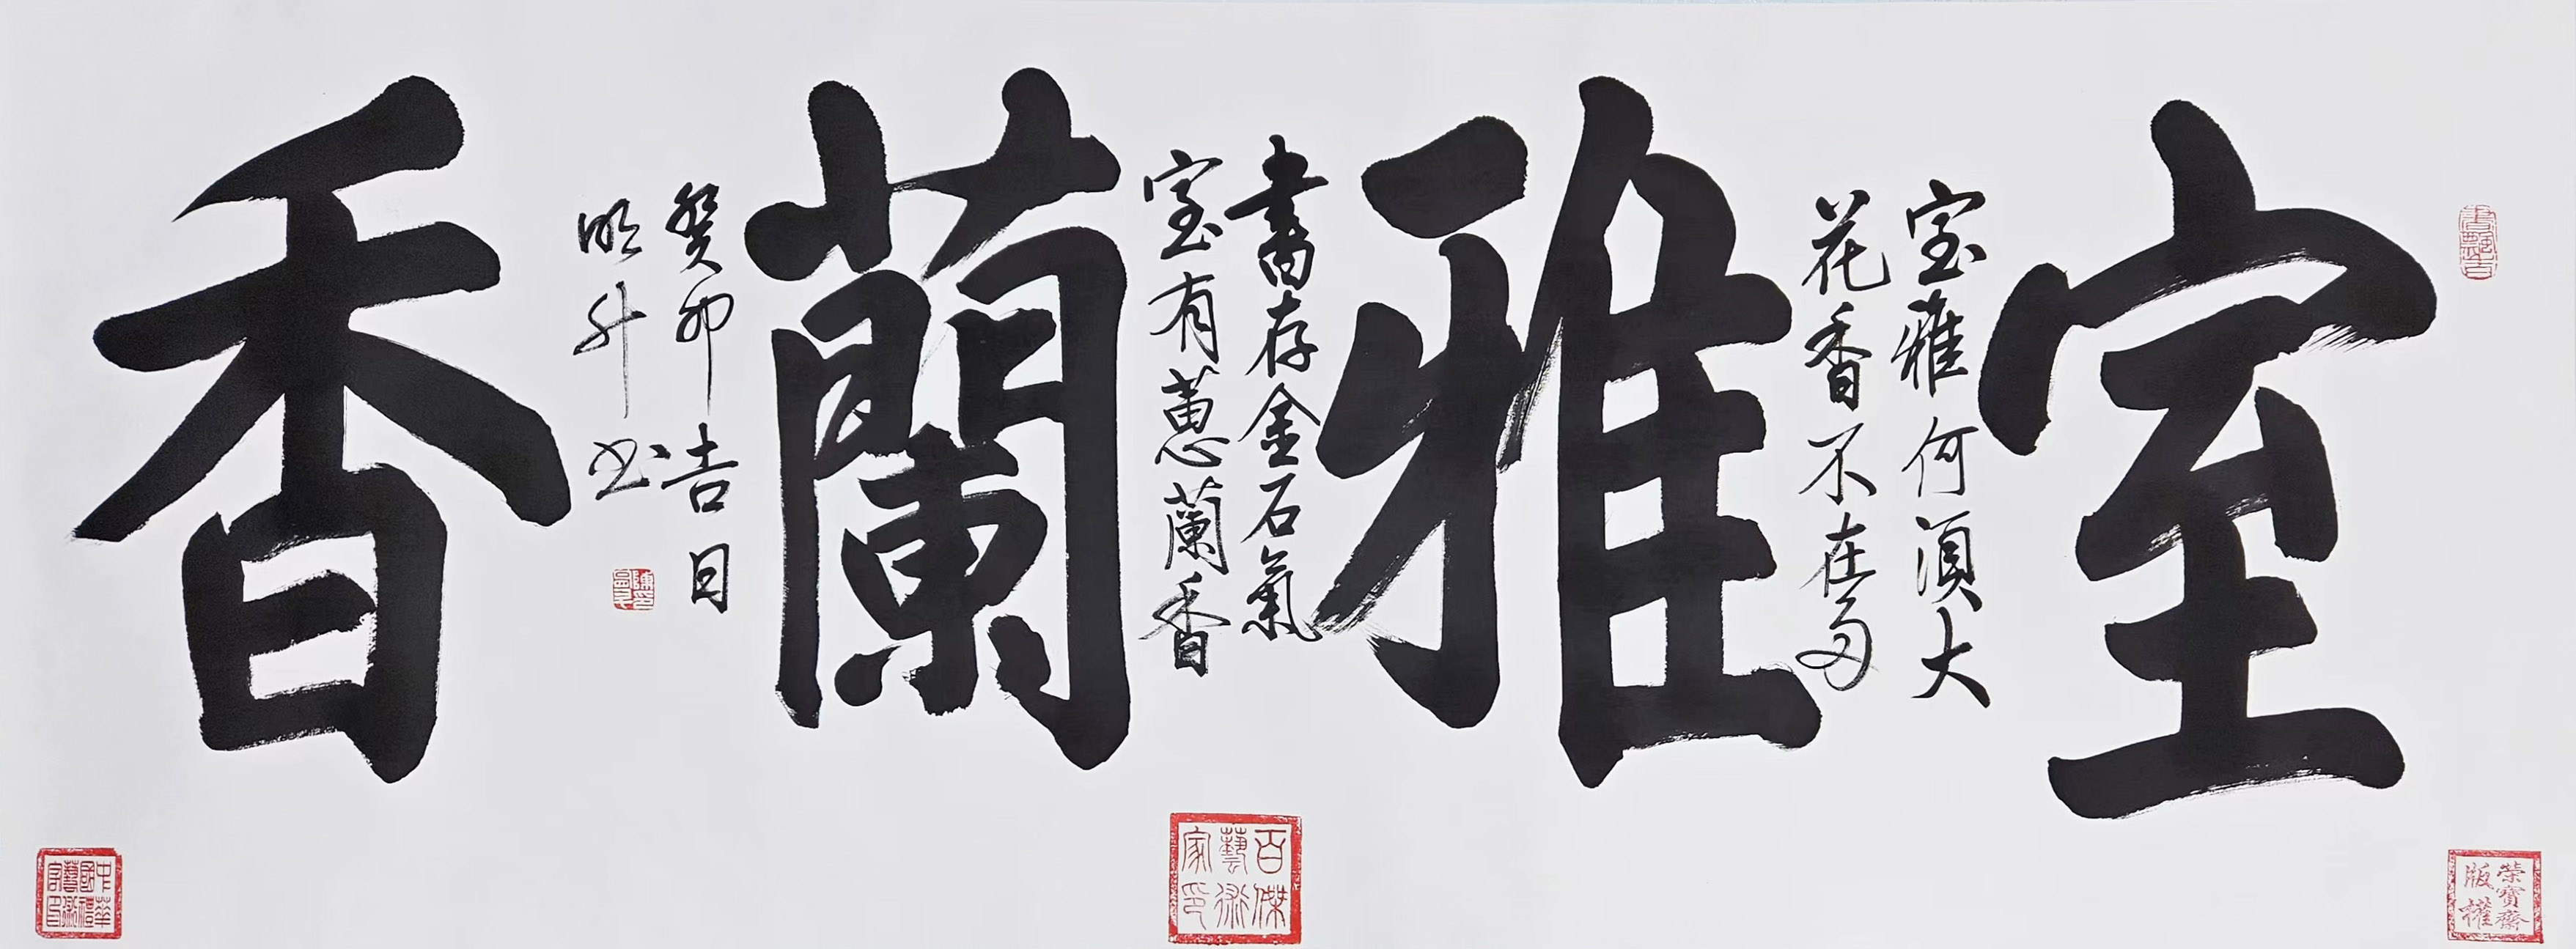 室
室雅何須大
花香不在多
雅
書存金石氣
室有蕙蘭香
蘭
癸卯吉日
明升书
香
百傑
藝術
家印
榮寶齋
版權